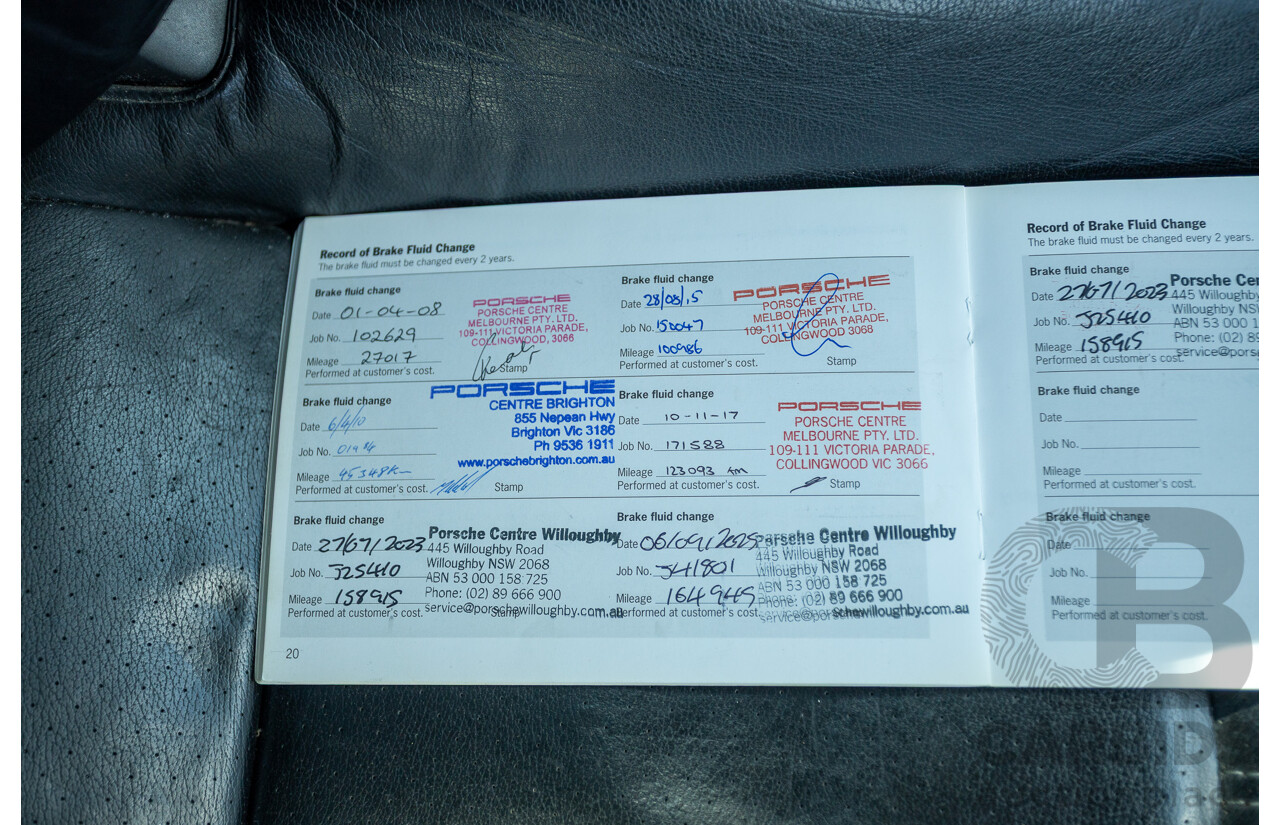 Record of Brake Fluid Change
The brake fluid must be changed every 2 years.
Brake fluid change
Date 01-04-08
Job No. 102629
Mileage 27017
Performed at customer's cost.
PORSCHE
PORSCHE CENTRE
MELBOURNE PTY. LTD.
109-111 VICTORIA PARADE,
COLLINGWOOD, 3066
Stamp
Brake fluid change
Date 28/08/15
Job No. 150047
Mileage 100986
Performed at customer's cost.
PORSCHE
PORSCHE CENTRE
MELBOURNE PTY. LTD.
109-111 VICTORIA PARADE,
COLLINGWOOD 3068
Stamp
Brake fluid change
Date 6/4/10
Job No.
Mileage 45348km
Performed at customer's cost.
PORSCHE
CENTRE BRIGHTON
855 Nepean Hwy
Brighton Vic 3186
Ph 9536 1911
www.porschebrighton.com.au
Stamp
Brake fluid change
Date 10-11-17
Job No. 171588
Mileage 123093 km
Performed at customer's cost.
PORSCHE
PORSCHE CENTRE
MELBOURNE PTY. LTD.
109-111 VICTORIA PARADE,
COLLINGWOOD VIC 3066
Stamp
Brake fluid change
Date 27/07/2023
Job No. 325410
Mileage 158915
Performed at customer's cost.
Porsche Centre Willoughby
445 Willoughby Road
Willoughby NSW 2068
ABN 53 000 158 725
Phone: (02) 89 666 900
service@porschewilloughby.com.au
Stamp
Brake fluid change
Date 06/09/2025
Job No. 341801
Mileage 164945
Performed at customer's cost.
Porsche Centre Willoughby
445 Willoughby Road
Willoughby NSW 2068
ABN 53 000 158 725
Phone: (02) 89 666 900
service@porschewilloughby.com.au
20
Record of Brake Fluid Change
The brake fluid must be changed every 2 years.
Brake fluid change
Date 27/67/2023
Job No. 325410
Mileage 158915
Performed at customer's cost.
Porsche Cen
445 Willoughby
Willoughby NS
ABN 53 000 1
Phone: (02) 89
service@pors
Brake fluid change
Date
Job No.
Mileage
Performed at customer's cost.
Brake fluid change
Date
Job No.
Mileage
Performed at customer's cost.